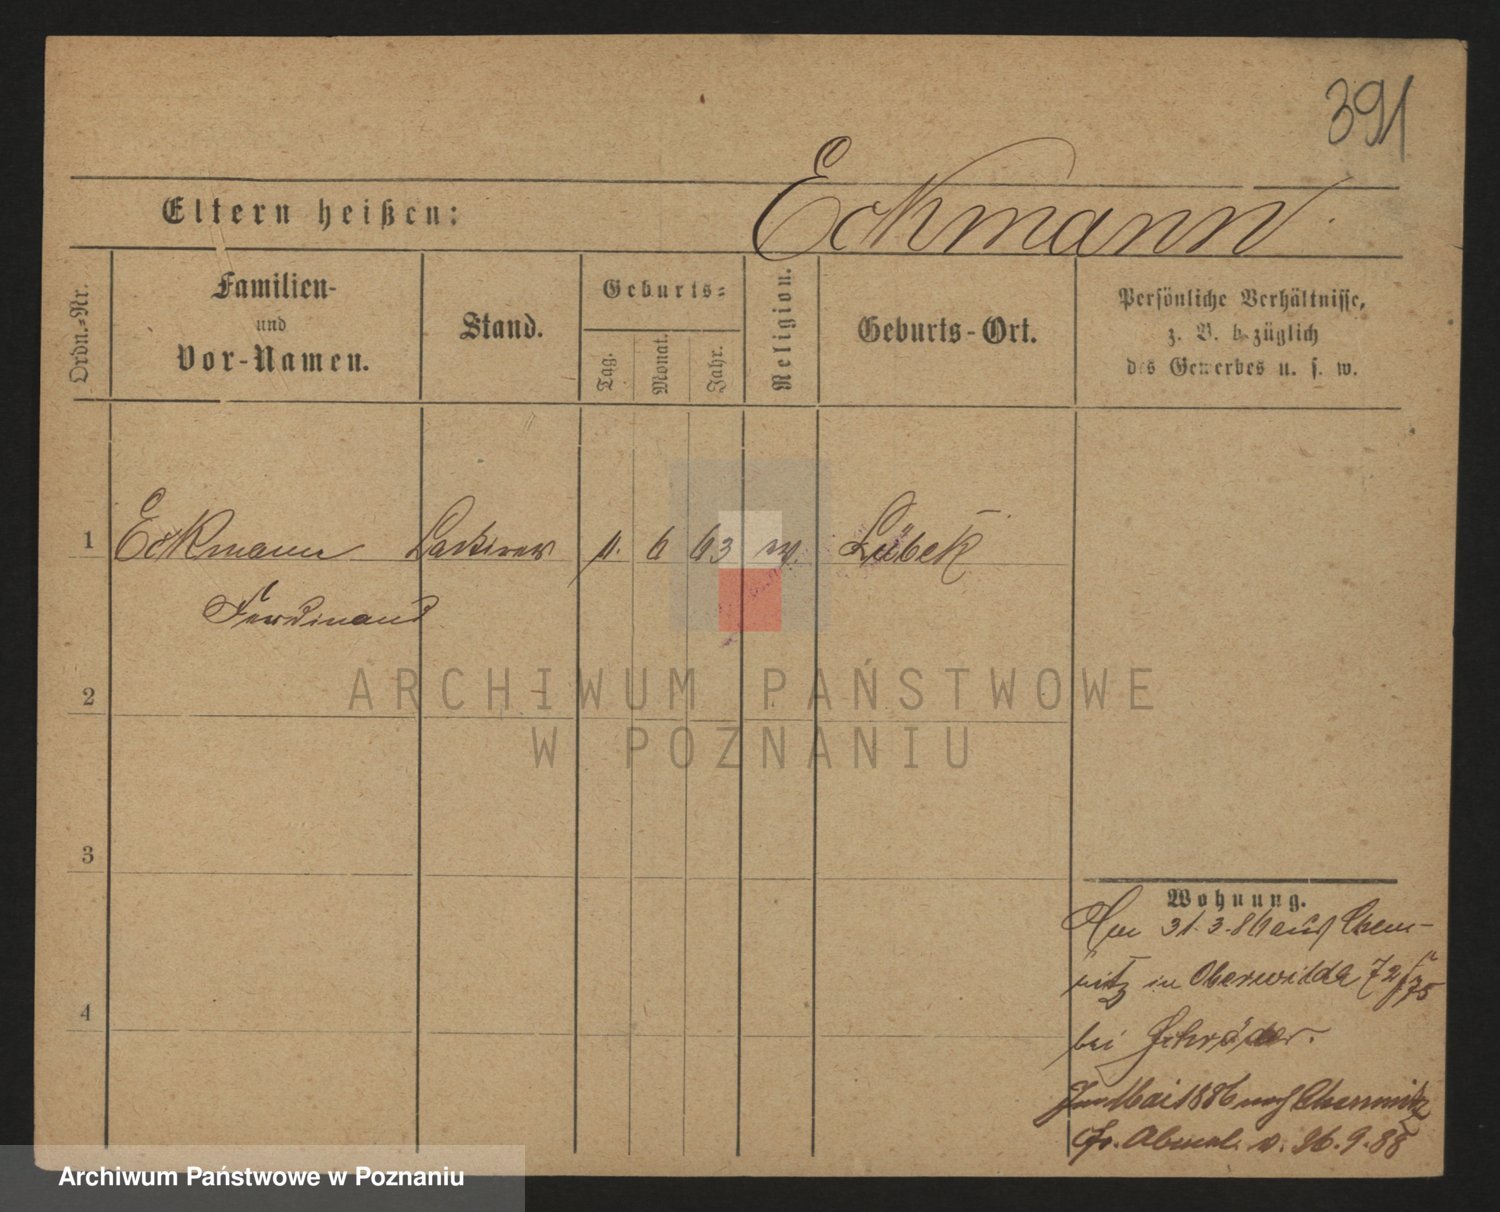 391
Eckmann
Eltern heißen:
Ordn.-Nr.
Familien-
und
Vor-Namen.
Stand.
Geburts-
Tag.
Monat.
Jahr.
Religion.
Geburts-Ort.
Persönliche Verhältnisse,
z. B. bezüglich
des Gewerbes u. s. w.
1 Eckmann Lackirer 6 63 Lübek
Ferdinand
2
ARCHIWUM PAŃSTWOWE
W POZNANIU
3
4
Wohnung.
31.3.86 aus Chem-
nitz in Oberwilda 72/75
bei Schröder.
Im Mai 1886 nach Chemnitz
Abmel. v. 26.9.88
Archiwum Państwowe w Poznaniu